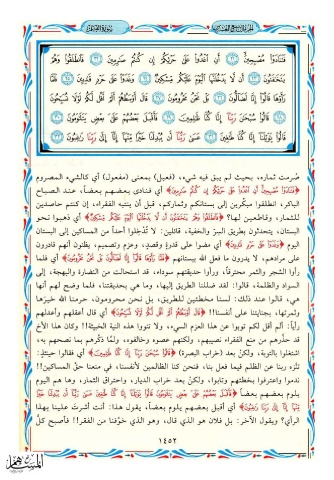 فَتَنَادَوْا مُصْبِحِينَ ۝ أَنِ اغْدُوا عَلَىٰ حَرْثِكُمْ إِن كُنتُمْ صَارِمِينَ ۝ فَانطَلَقُوا وَهُمْ
يَتَخَافَتُونَ ۝ أَن لَّا يَدْخُلَنَّهَا الْيَوْمَ عَلَيْكُم مِّسْكِينٌ ۝ وَغَدَوْا عَلَىٰ حَرْدٍ قَادِرِينَ ۝ فَلَمَّا
رَأَوْهَا قَالُوا إِنَّا لَضَالُّونَ ۝ بَلْ نَحْنُ مَحْرُومُونَ ۝ قَالَ أَوْسَطُهُمْ أَلَمْ أَقُل لَّكُمْ لَوْلَا تُسَبِّحُونَ
۝ قَالُوا سُبْحَانَ رَبِّنَا إِنَّا كُنَّا ظَالِمِينَ ۝ فَأَقْبَلَ بَعْضُهُمْ عَلَىٰ بَعْضٍ يَتَلَاوَمُونَ ۝
قَالُوا يَا وَيْلَنَا إِنَّا كُنَّا طَاغِينَ ۝ عَسَىٰ رَبُّنَا أَن يُبْدِلَنَا خَيْرًا مِّنْهَا إِنَّا إِلَىٰ رَبِّنَا رَاغِبُونَ ۝
صُرمت ثماره، بحيث لم يبق فيه شيء، (فعيل) بمعنى (مفعول) أي كالشيء المصروم
﴿فَتَنَادَوْا مُصْبِحِينَ أَنِ اغْدُوا عَلَىٰ حَرْثِكُمْ إِن كُنتُمْ صَارِمِينَ﴾ أي فنادى بعضهم بعضاً، عند الصباح
الباكر، انطلقوا مبكّرين إلى بستانكم وثماركم، قبل أن ينتبه الفقراء، إن كنتم حاصدين
للثمار، وقاطعين لها؟ ﴿فَانطَلَقُوا وَهُمْ يَتَخَافَتُونَ أَن لَّا يَدْخُلَنَّهَا الْيَوْمَ عَلَيْكُم مِّسْكِينٌ﴾ أي ذهبوا نحو
البستان، يتحدثون بطريق السرّ والخفية، قائلين: لا تُدخلوا أحداً من المساكين إلى البستان
اليوم ﴿وَغَدَوْا عَلَىٰ حَرْدٍ قَادِرِينَ﴾ أي مضوا على قدرةٍ وقصدٍ، وعزم وتصميم، يظنون أنهم قادرون
على مرادهم، لا يدرون ما فعل الله ببستانهم ﴿فَلَمَّا رَأَوْهَا قَالُوا إِنَّا لَضَالُّونَ بَلْ نَحْنُ مَحْرُومُونَ﴾ أي فلما
رأوا الشجر والثمر محترقاً، ورأوا حديقتهم سوداء، قد استحالت من النضارة والبهجة، إلى
السواد والظلمة، قالوا: لقد ضللنا الطريق إليها، وما هي بحديقتنا، فلما وضح لهم أنها
هي، قالوا عند ذلك: لسنا مخطئين للطريق، بل نحن محرومون، حرمنا الله خيرَها
وثمرتها، بجنايتنا على أنفسنا!! ﴿قَالَ أَوْسَطُهُمْ أَلَمْ أَقُل لَّكُمْ لَوْلَا تُسَبِّحُونَ﴾ أي قال أعقلهم وأعدلهم
رأياً: ألم أقل لكم توبوا عن هذا العزم السيء، ولا تنووا هذه النية الخبيثة!! وكان هذا الأخ
قد حذّرهم من منع الفقراء نصيبهم، ولكنهم عصوه وخالفوه، ولمّا ذكّرهم بما نصحهم به،
اشتغلوا بالتوبة، ولكنْ بعد (خراب البصرة) ﴿قَالُوا سُبْحَانَ رَبِّنَا إِنَّا كُنَّا ظَالِمِينَ﴾ أي فقالوا حينئذٍ:
تنزّه ربنا عن الظلم فيما فعل بنا، فنحن كنا الظالمين لأنفسنا، في منعنا حقَّ المساكين!!
ندموا واعترفوا بخطئهم وتابوا، ولكنْ بعد خراب الديار، واحتراق الثمار، وها هم اليوم
يلوم بعضهم بعضاً ﴿فَأَقْبَلَ بَعْضُهُمْ عَلَىٰ بَعْضٍ يَتَلَاوَمُونَ قَالُوا يَا وَيْلَنَا إِنَّا كُنَّا طَاغِينَ عَسَىٰ رَبُّنَا أَن يُبْدِلَنَا خَيْرًا
مِّنْهَا إِنَّا إِلَىٰ رَبِّنَا رَاغِبُونَ﴾ أي أقبل بعضهم يلوم بعضاً، يقول هذا: أنت أشرتَ علينا بهذا
الرأي؟ ويقول الآخر: بل فلان هو الذي قال، وهو الذي خوّفنا من الفقر!! فأصبح كلٌّ
١٤٥٢